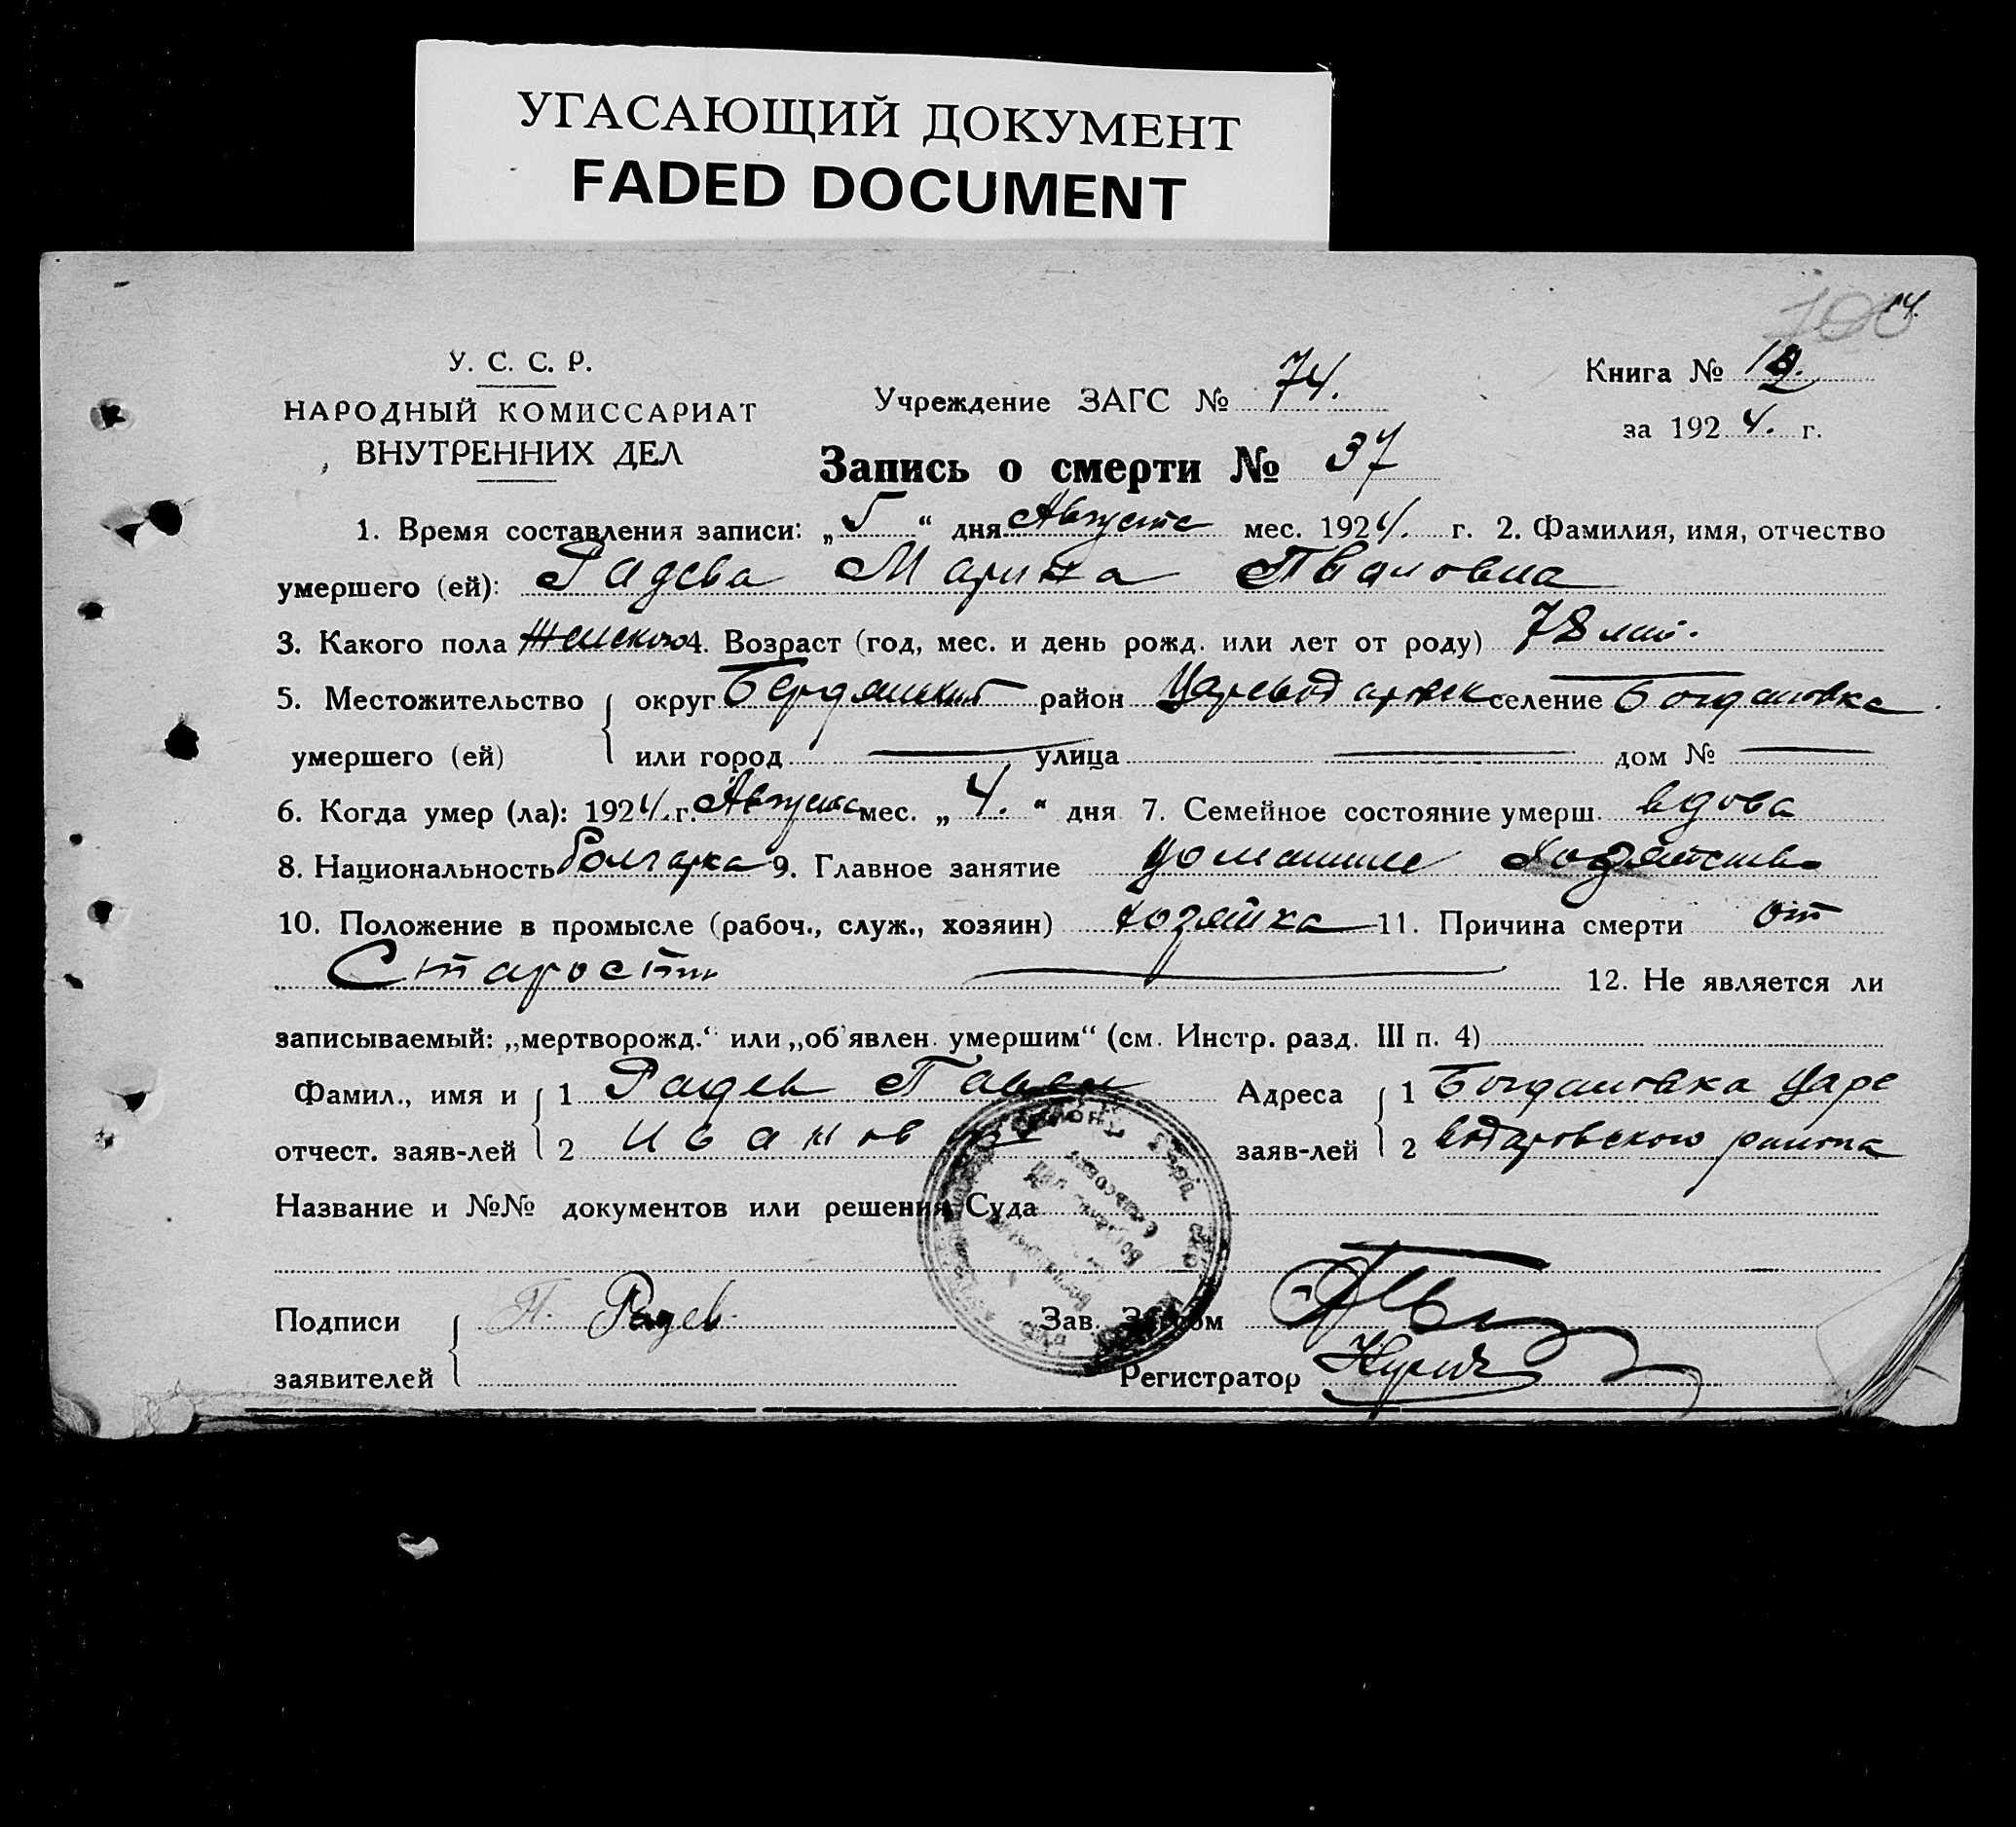 УГАСАЮЩИЙ ДОКУМЕНТ
FADED DOCUMENT
У. С. С. Р.
НАРОДНЫЙ КОМИССАРИАТ
ВНУТРЕННИХ ДЕЛ
Учреждение ЗАГС № 74.
Книга №
за 1924. г.
Запись о смерти № 37
1. Время составления записи: „5“ дня Августа мес. 1924. г. 2. Фамилия, имя, отчество
умершего (ей): Радева Марина
3. Какого пола Женского 4. Возраст (год, мес. и день рожд. или лет от роду) 78 лет.
5. Местожительство округ Бердянский район Цареводаровск селение Богдановка
умершего (ей) или город улица дом №
6. Когда умер (ла): 1924. г. Августа мес. „4.“ дня 7. Семейное состояние умерш. вдова
8. Национальность болгарка 9. Главное занятие домашнее хозяйство
10. Положение в промысле (рабоч., служ., хозяин) хозяйка 11. Причина смерти от
Старости 12. Не является ли
записываемый: „мертворожд.“ или „об'явлен. умершим“ (см. Инстр. разд. III п. 4)
Фамил., имя и 1 Радев Павел Адреса 1 Богдановка Царе
отчест. заяв-лей 2 Иванович заяв-лей 2 водаровского района
Название и №№ документов или решения Суда
Подписи П. Радев Зав. Загсом
заявителей Регистратор